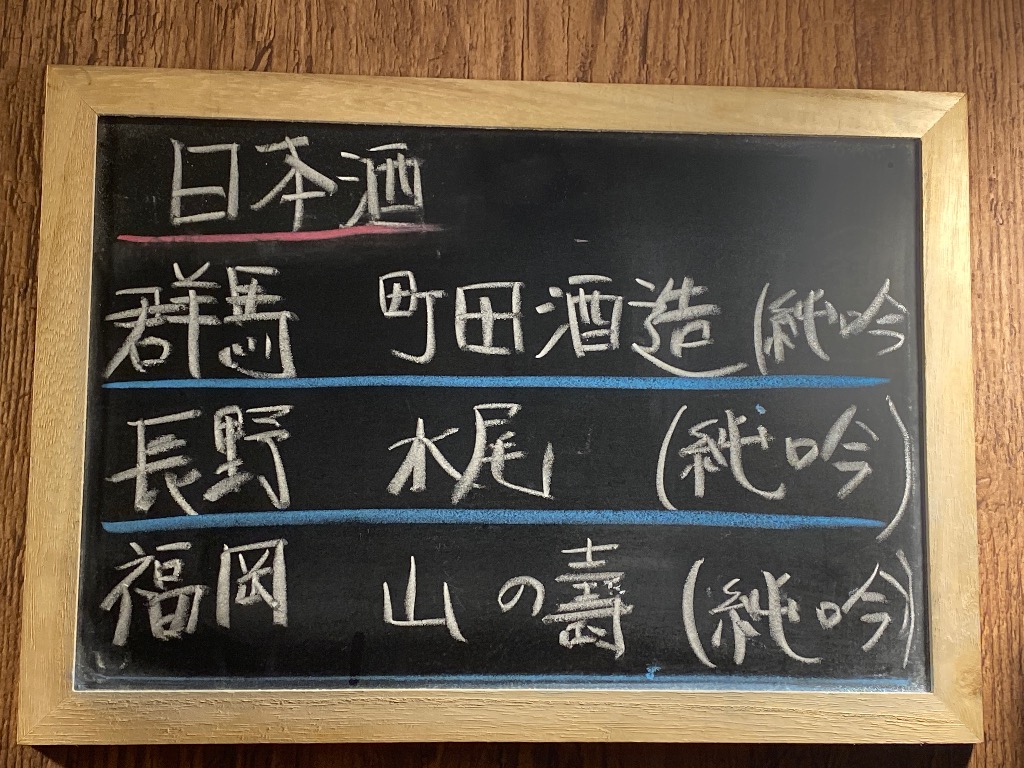 日本酒
群馬 町田酒造 (純吟
長野 水尾 (純吟)
福岡 山の壽 (純吟)